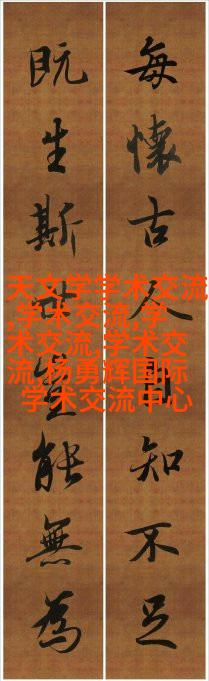 每懷古人自知不足
既生斯世豈能無為
天文学学术交流
,学术交流,学
术交流,学术交
流,杨勇辉国际
学术交流中心